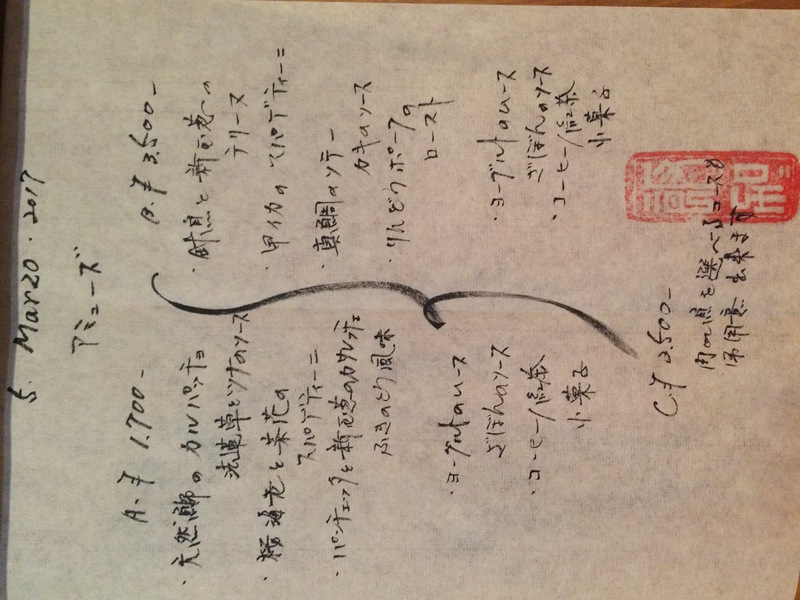 5. Mar 20. 2017
アミューズ
A. ¥ 1.700-
・天然鰤のカルパッチョ
法蓮草とツナのソース
・桜海老と菜花の
スパゲティーニ
・パンチェッタと新玉葱の
ふきのとう風味
・ヨーグルトのムース
ざぼんのソース
・コーヒー/紅茶
小菓子
B. ¥ 3.500-
・と新玉葱の
テリーヌ
・甲イカのスパゲティーニ
・真鯛のソテー
カキのソース
・りんどうポークの
ロースト
・ヨーグルトのムース
ざぼんのソース
・コーヒー/紅茶
小菓子
C. ¥ 2.500-
を選べるコースも
御用意出来ます